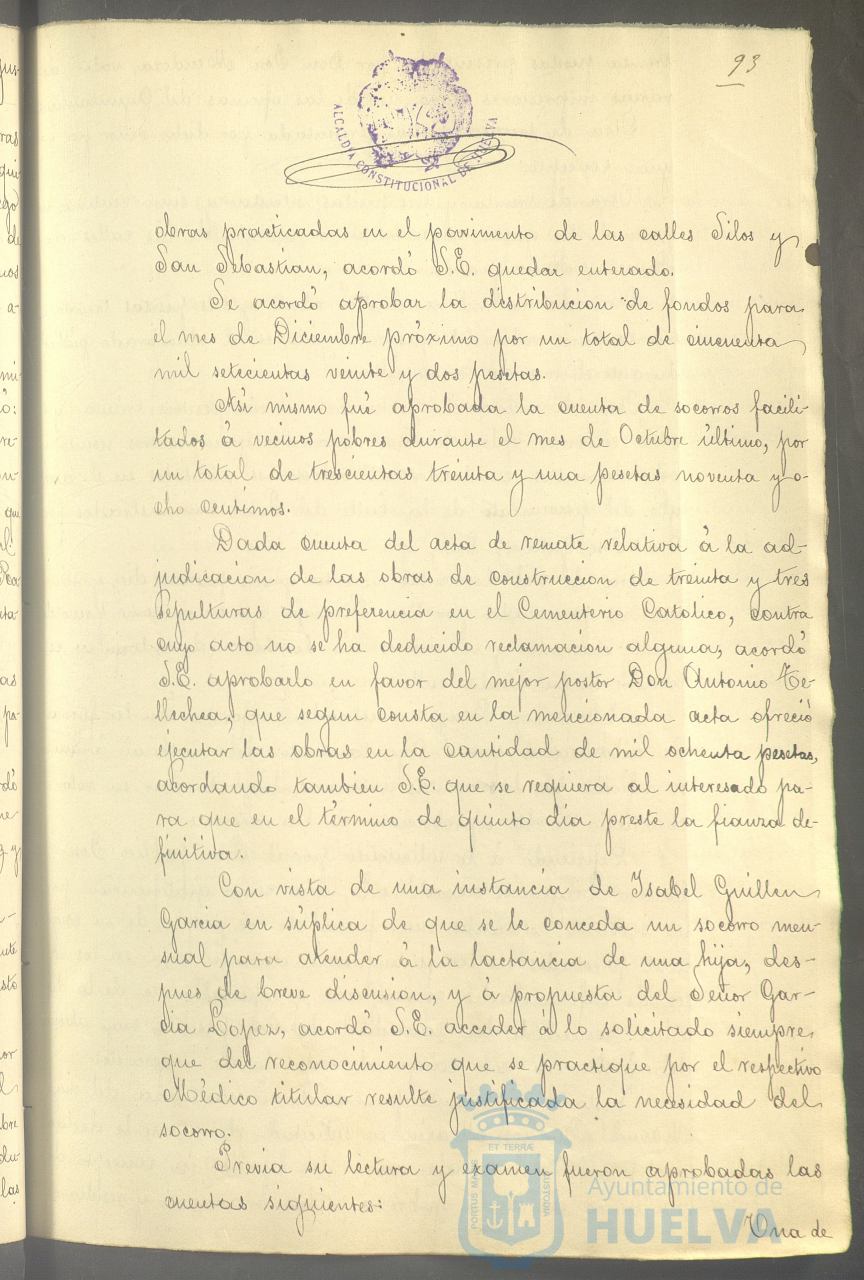 93
ALCALDIA CONSTITUCIONAL DE HUELVA
obras practicadas en el pavimento de las calles Silos y
San Sebastian, acordó S.E. quedar enterado.
Se acordó aprobar la distribucion de fondos para
el mes de Diciembre próximo por un total de cincuenta
mil setecientas veinte y dos pesetas.
Así mismo fué aprobada la cuenta de socorros facili-
tados á vecinos pobres durante el mes de Octubre último, por
un total de trescientas treinta y una pesetas noventa y o-
cho centimos.
Dada cuenta del acta de remate relativa á la ad-
judicacion de las obras de construccion de treinta y tres
sepulturas de preferencia en el Cementerio Católico, contra
cuyo acto no se ha deducido reclamacion alguna, acordó
S.E. aprobarlo en favor del mejor postor Don Antonio Te-
llechea, que segun consta en la mencionada acta ofreció
ejecutar las obras en la cantidad de mil ochenta pesetas,
acordando tambien S.E. que se requiera al interesado pa-
ra que en el término de quinto dia preste la fianza de-
finitiva.
Con vista de una instancia de Isabel Guillen
Garcia en súplica de que se le conceda un socorro men-
sual para atender á la lactancia de una hija, des-
pues de breve discusion, y á propuesta del Señor Gar-
cia Lopez, acordó S.E. acceder á lo solicitado siempre
que del reconocimiento que se practique por el respectivo
Médico titular resulte justificada la necesidad del
socorro.
Previa su lectura y examen fueron aprobadas las
cuentas siguientes:
Una de
PORTUS MARIS ET TERRÆ CUSTODIA
Ayuntamiento de
HUELVA